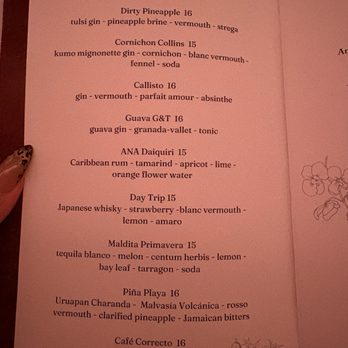 Dirty Pineapple 16
tulsi gin - pineapple brine - vermouth - strega
Cornichon Collins 15
kumo mignonette gin - cornichon - blanc vermouth -
fennel - soda
Callisto 16
gin - vermouth - parfait amour - absinthe
Guava G&T 16
guava gin - granada-vallet - tonic
ANA Daiquiri 15
Caribbean rum - tamarind - apricot - lime -
orange flower water
Day Trip 15
Japanese whisky - strawberry -blanc vermouth -
lemon - amaro
Maldita Primavera 15
tequila blanco - melon - centum herbis - lemon -
bay leaf - tarragon - soda
Piña Playa 16
Uruapan Charanda - Malvasía Volcánica - rosso
vermouth - clarified pineapple - Jamaican bitters
Café Correcto 16